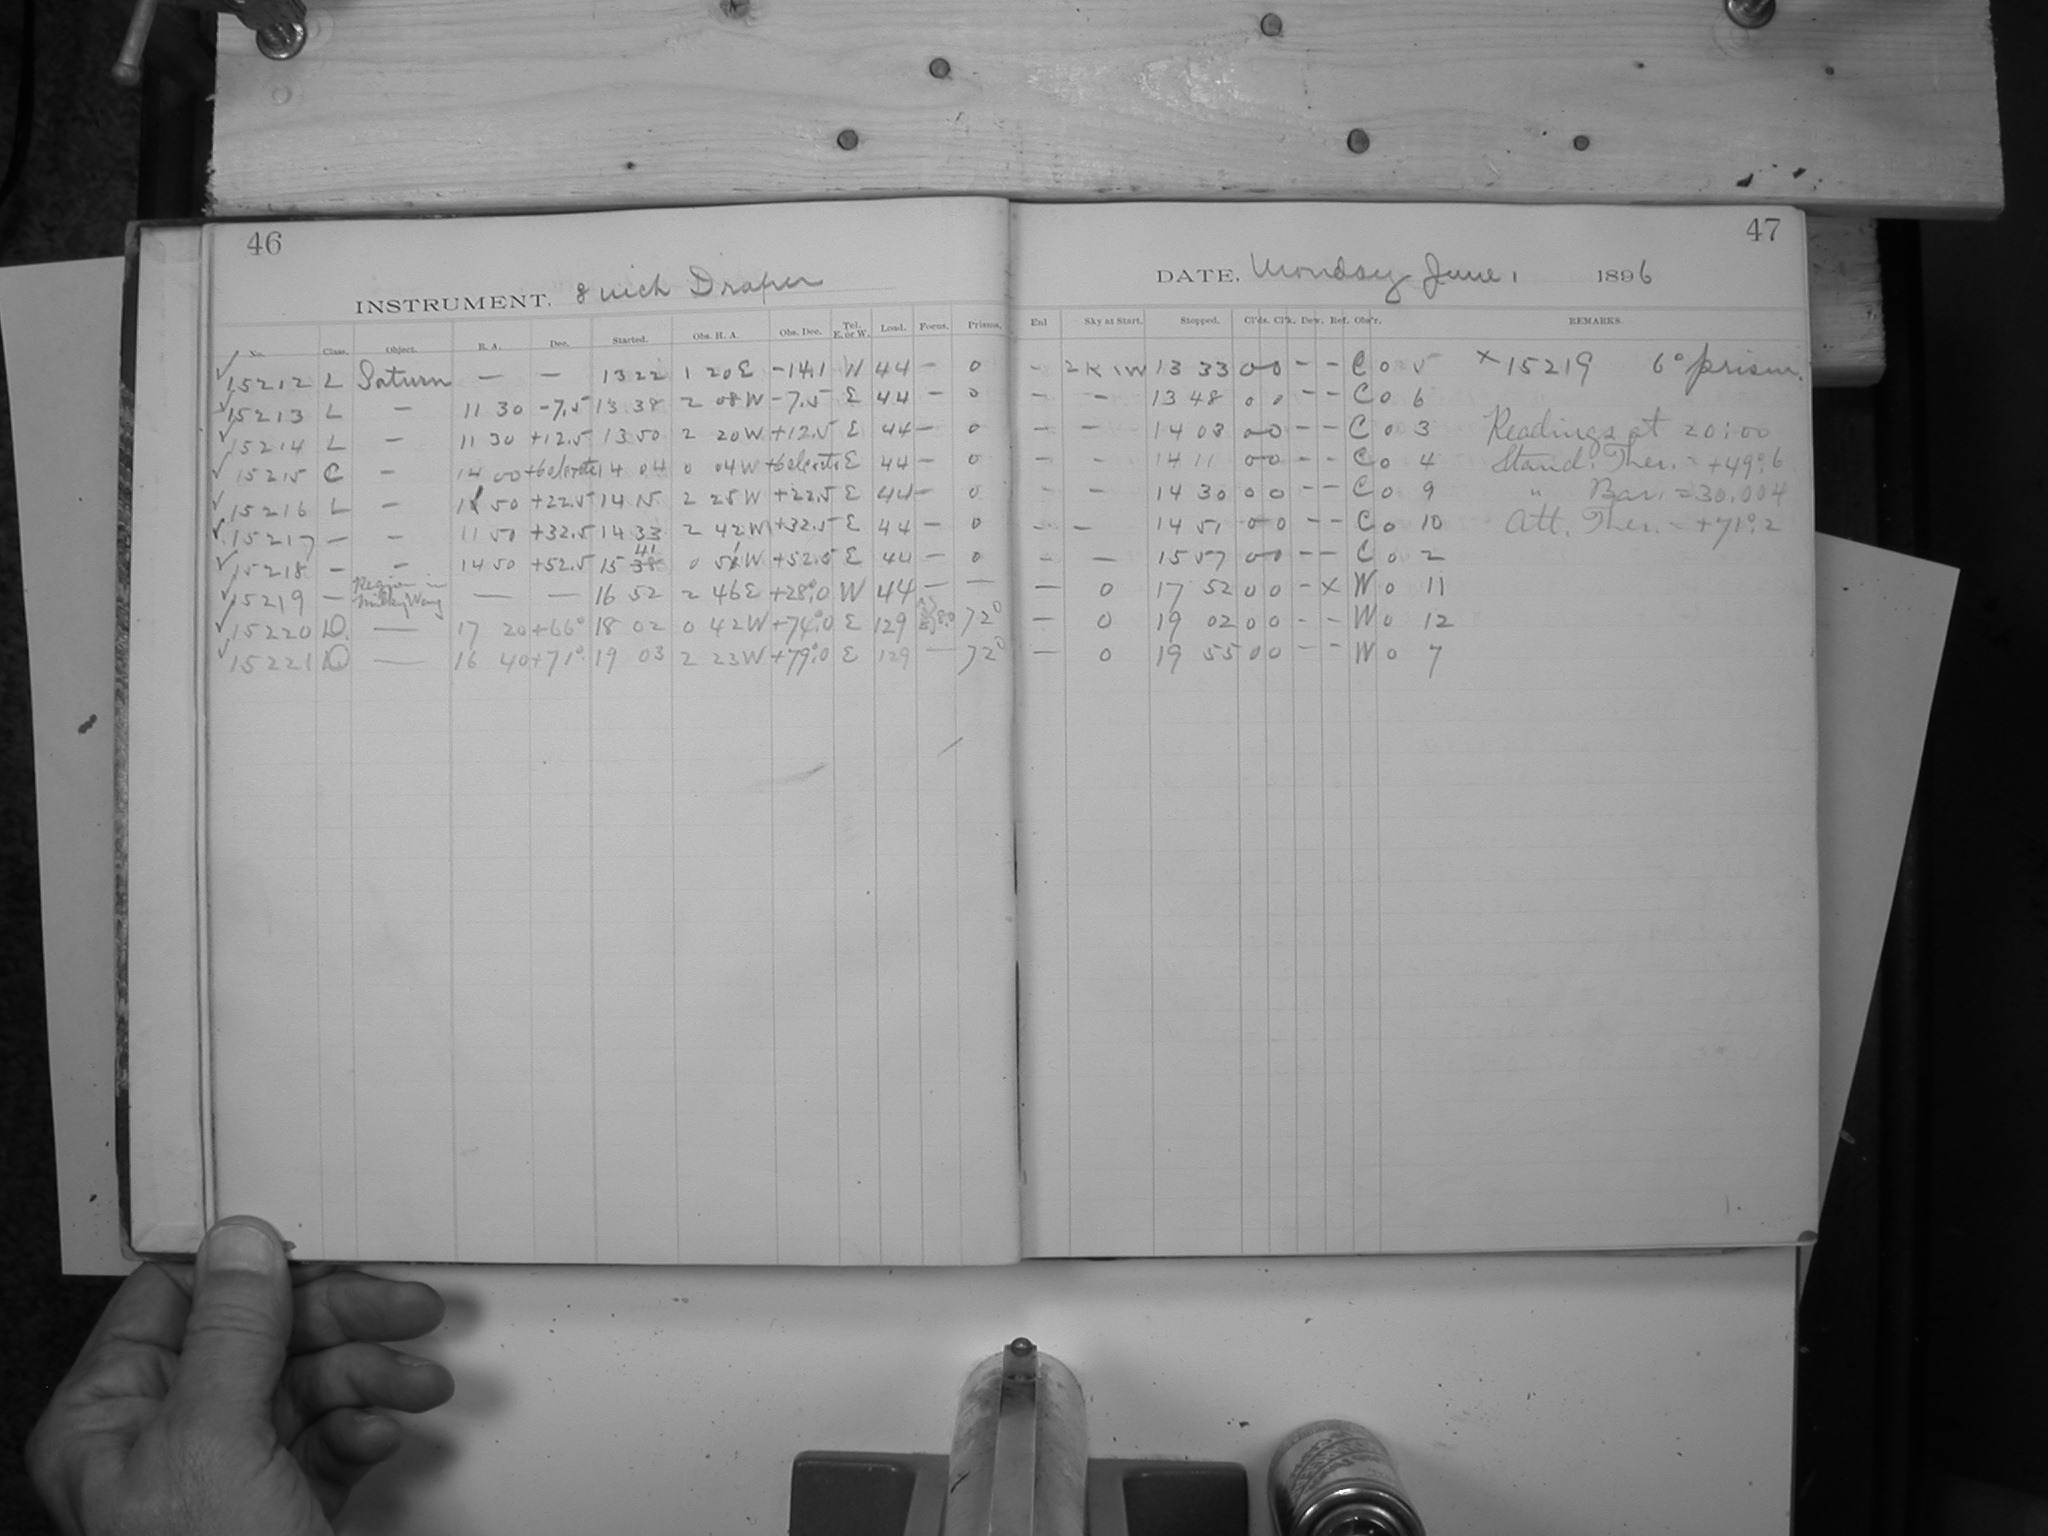 46
INSTRUMENT. 8 inch Draper
No. Class. Object. R. A. Dec. Started. Obs. H. A. Obs. Dec. Tel. E. or W. Load. Focus. Prisms.
✓ 15212 L Saturn — — 13 22 1 20 E -14.1 W 44 — 0
✓ 15213 L — 11 30 -7.5 13 38 2 08 W -7.5 E 44 — 0
✓ 15214 L — 11 30 +12.5 13 50 2 20 W +12.5 E 44 — 0
✓ 15215 C — 14 00 14 04 0 04 W E 44 — 0
✓ 15216 L — 11 50 +22.5 14 15 2 25 W +22.5 E 44 — 0
✓ 15217 — — 11 50 +32.5 14 33 2 42 W +32.5 E 44 — 0
✓ 15218 — — 14 50 +52.5 15 41 0 51 W +52.5 E 44 — 0
✓ 15219 — Region in Milky Way — — 16 52 2 46 E +28°.0 W 44 — —
✓ 15220 D. — 17 20 +66° 18 02 0 42 W +74°.0 E 129 72°
✓ 15221 D — 16 40 +71° 19 03 2 23 W +79°.0 E 129 — 72°
47
DATE, Monday June 1 1896
Enl Sky at Start. Stopped. Cl'ds. Cl'k. Dew. Ref. Obs'r. REMARKS.
- 2 K 1 W 13 33 0 0 - - C 0 5 × 15219 6° prism.
— - 13 48 0 0 - - C 0 6
— - 14 03 0 0 - - C 0 3 Readings at 20:00
— - 14 11 0 0 - - C 0 4 Stand. Ther. = +49°.6
— - 14 30 0 0 - - C 0 9 " Bar. = 30.004
- — 14 51 0 0 - - C 0 10 Att. Ther. = +71°.2
- — 15 57 0 0 - - C 0 2
— 0 17 52 0 0 - × W 0 11
— 0 19 02 0 0 - - W 0 12
— 0 19 55 0 0 - - W 0 7